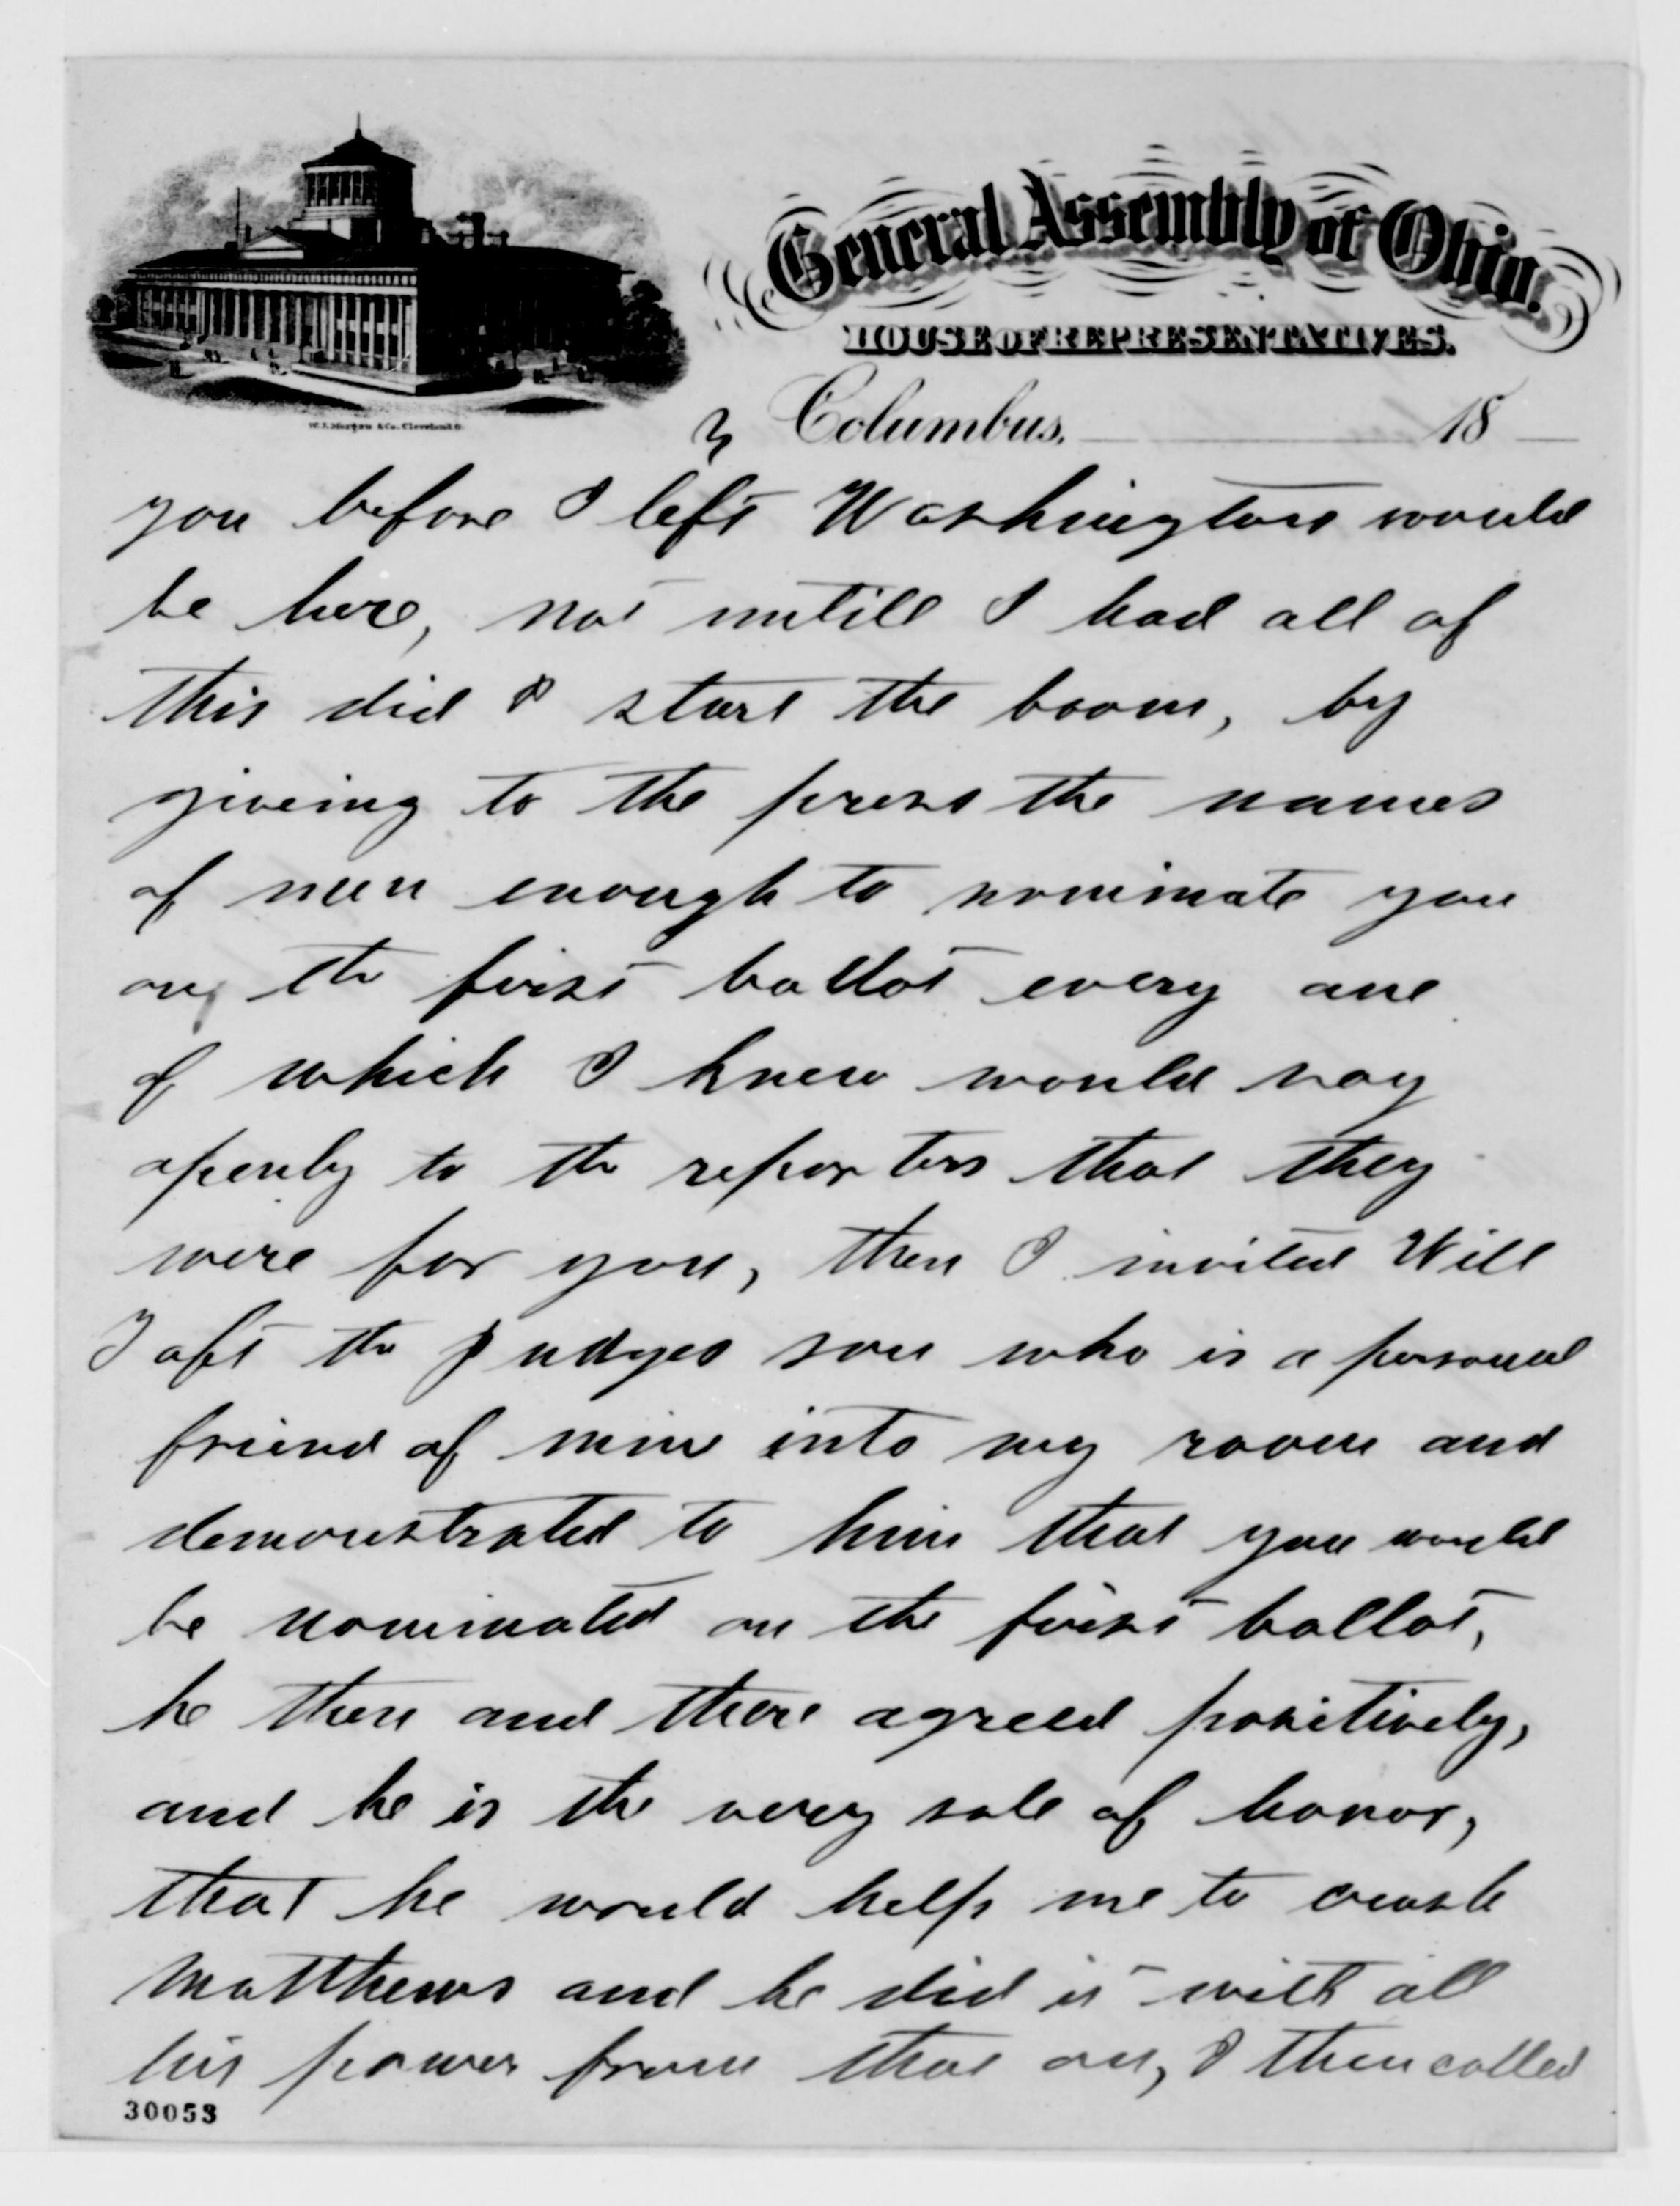 General Assembly of Ohio.
HOUSE OF REPRESENTATIVES.
W.J. Morgan & Co. Cleveland O.
3 Columbus, 18
you before I left Washington would
be here, not untill I had all of
this did I start the boom, by
giveing to the press the names
of men enough to nominate you
on the first ballot every one
of which I knew would say
openly to the reporters that they
were for you, then I invited Will
Taft the Judges son who is a personal
friend of mine into my room and
demonstrated to him that you would
be nominated on the first ballot,
he then and there agreed positively,
and he is the very sole of honor,
that he would help me to crush
Matthews and he did it with all
his power from that on, I then called
30053